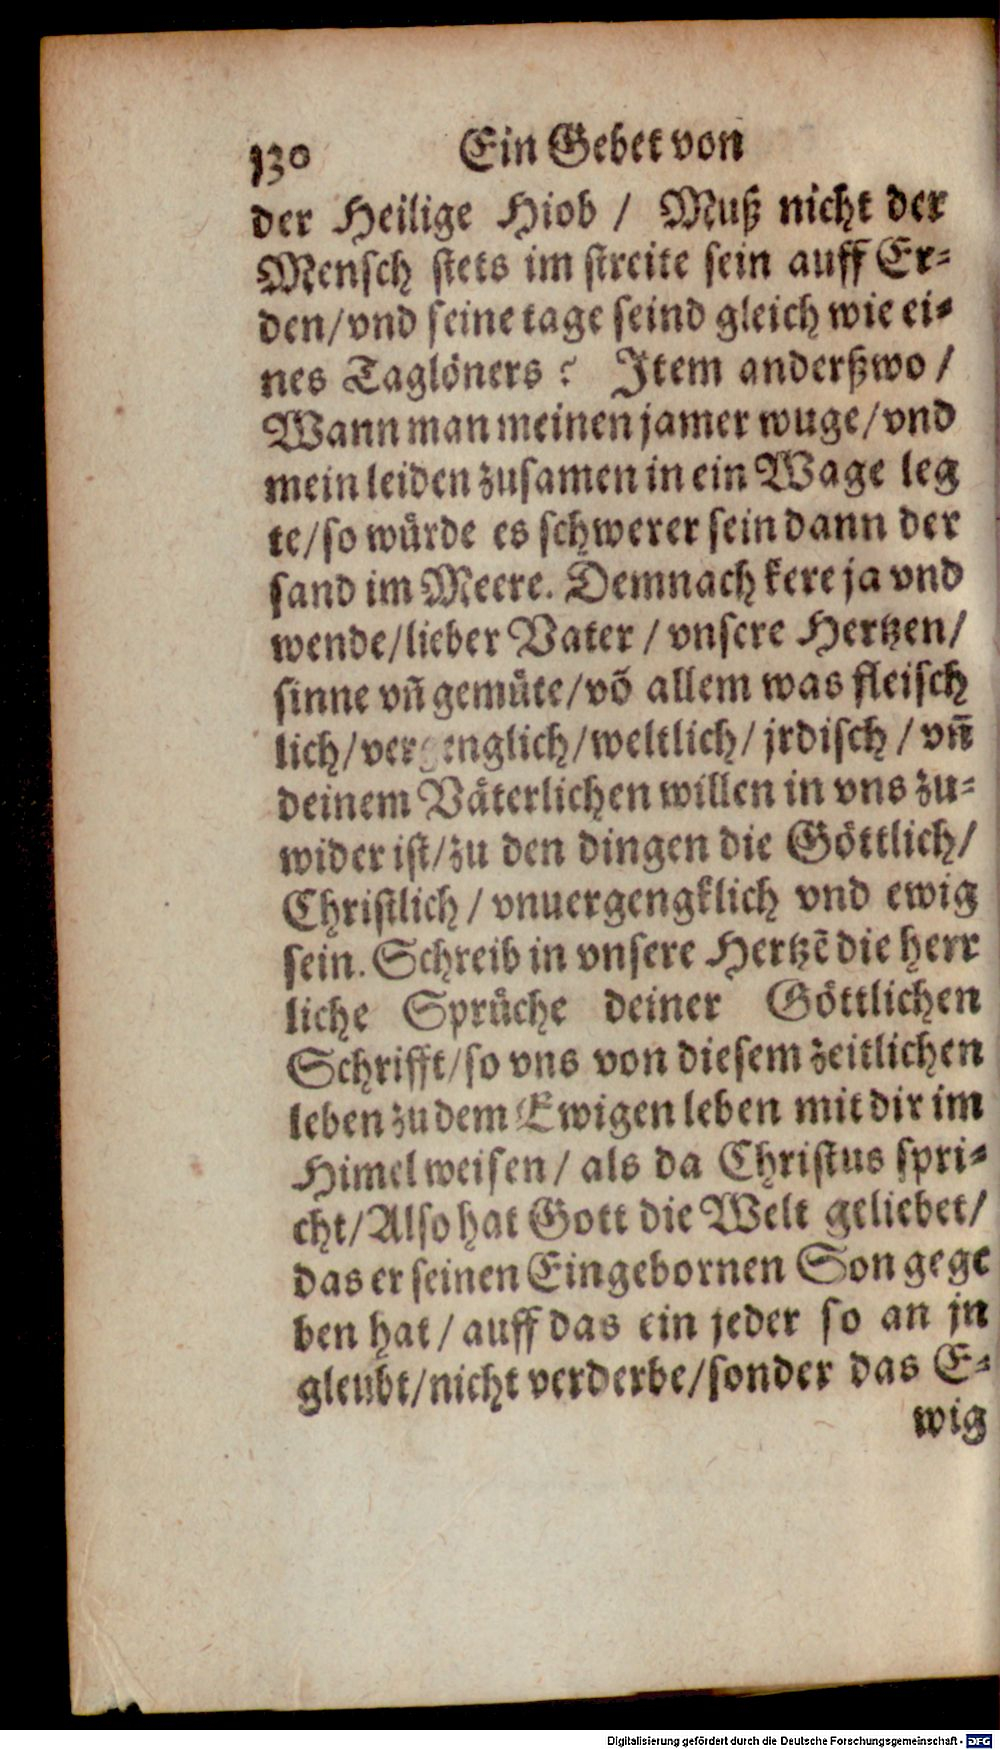 130 Ein Gebet von
der Heilige Hiob / Muß nicht der
Mensch stets im streite sein auff Er-
den/vnd seine tage seind gleich wie ei-
nes Taglöners ? Item anderßwo /
Wann man meinen jamer wuge/vnd
mein leiden zusamen in ein Wage leg
te/so wuͤrde es schwerer sein dann der
sand im Meere. Demnach kere ja vnd
wende/lieber Vater / vnsere Hertzen/
sinne vñ gemuͤte/võ allem was fleisch
lich/vergenglich/weltlich/ jrdisch / vñ
deinem Vaͤterlichen willen in vns zu-
wider ist/zu den dingen die Goͤttlich/
Christlich / vnuergengklich vnd ewig
sein. Schreib in vnsere Hertzẽ die herr
liche Spruͤche deiner Goͤttlichen
Schrifft/so vns von diesem zeitlichen
leben zu dem Ewigen leben mit dir im
Himel weisen / als da Christus spri-
cht/Also hat Gott die Welt geliebet/
das er seinen Eingebornen Son gege
ben hat / auff das ein jeder so an jn
gleubt/nicht verderbe/sonder das E-
wig
Digitalisierung gefördert durch die Deutsche Forschungsgemeinschaft - DFG